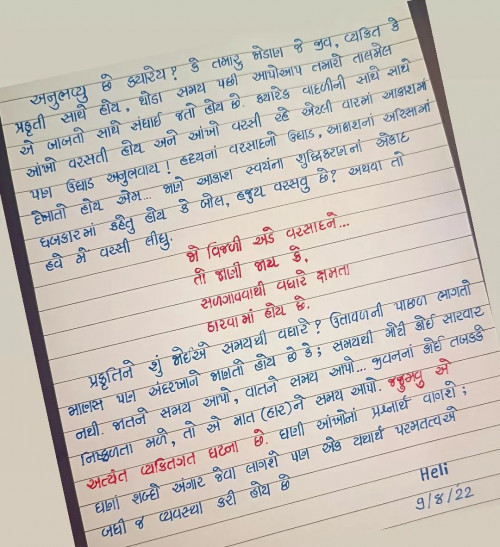 અનુભવ્યુ છે ક્યારેય? કે તમારુ જોડાણ જે જીવ, વ્યકિત કે
પ્રકૃતી સાથે હોય, થોડા સમય પછી આપોઆપ તમારો તાલમેલ
એ બાબતો સાથે સંધાઈ જતો હોય છે. ક્યારેક વાદળીની સાથે સાથે
આંખો વરસતી હોય અને આંખો વરસી રહે એટલી વારમાં આકાશમાં
પણ ઉઘાડ અનુભવાય! હૃદયનાં વરસાદનો ઉઘાડ, આકાશનાં અરિસામાં
દેખાતો હોય એમ... જાણે આકાશ સ્વયંના શુધ્ધિકરણનાં એકાદ
ધબકારમાં કહેતુ હોય કે બોલ, હજુય વરસવુ છે? અથવા તો
હવે મેં વરસી લીધુ.
જો વિજળી અડે વરસાદને...
તો જાણી જાય કે,
સળગાવવાથી વધારે ક્ષમતા
ઠારવામાં હોય છે.
પ્રકૃતિને શું જોઈએ સમયથી વધારે? ઉતાવળની પાછળ ભાગતો
માણસ પણ અંદરખાને જાણતો હોય છે કે; સમયથી મોટી કોઈ સારવાર
નથી. જાતને સમય આપો, વાતને સમય આપો... જીવનનાં કોઈ તબક્કે
નિષ્ફળતા મળે, તો એ માત (હાર)ને સમય આપો. જજુમવુ એ
અત્યંત વ્યકિતગત ઘટના છે. ઘણી આંખોનાં પ્રશ્નાર્થ વાગશે;
ઘણાં શબ્દો અંગાર જેવા લાગશે પણ એક યથાર્થ પરમતત્વએ
બધી જ વ્યવસ્થા કરી હોય છે
Heli
9/8/22